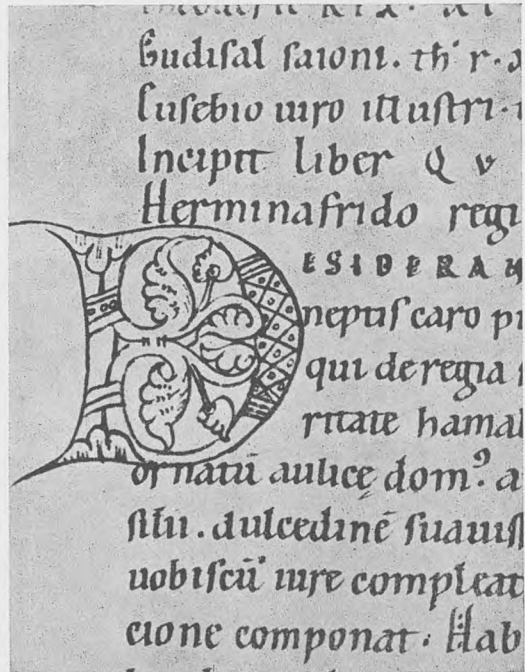 Gudisal saioni. th' r.
Eusebio uiro illustri.
Incipit liber Q V
Herminafrido regi
DESIDERAN
neptis caro
qui de regia
ritate hamal
ornatū aulicę dom⁹. a
situ. dulcedinē suauiss
uobiscū iure compleat
cione componat. Hab